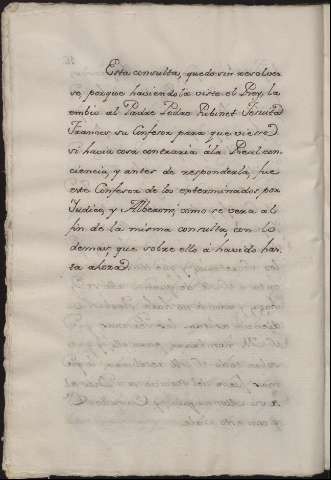 Esta consulta, quedo sin resolver
se, porque haviendola visto el Rey, la
embio al Padre Pedro Robinet Jesuita
Frances su Confesor para que viesse
si havia cosa contraria à la Real con-
ciencia, y antes de responderla, fue
este Confesor de los exterminados por
Judice, y Alberoni, como se vera al
fin de la misma consulta, con lo
demas, que sobre ello à havido has-
ta ahora.